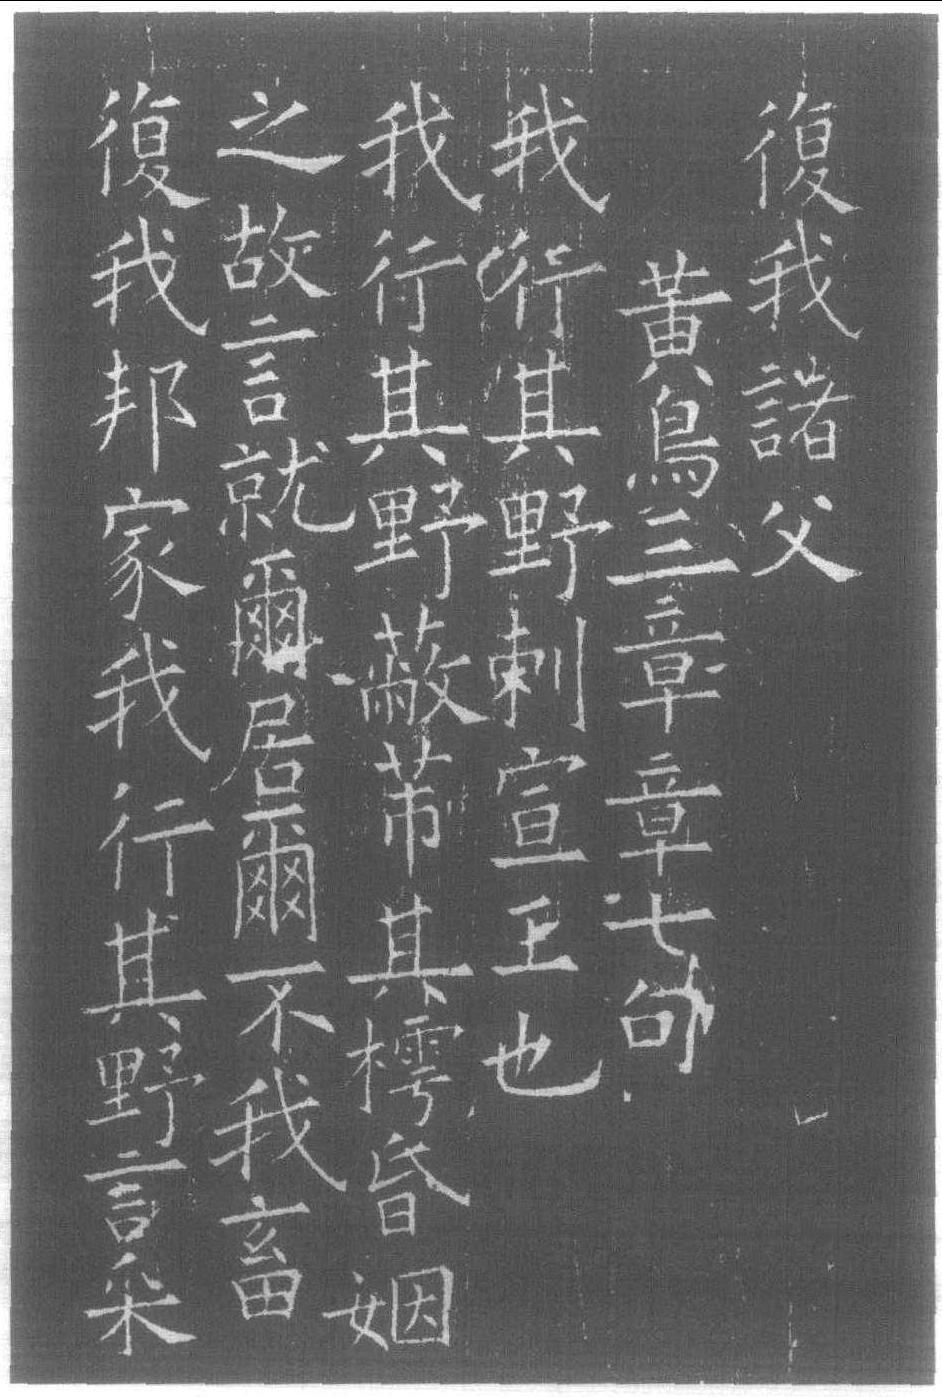 復我諸父
黃鳥三章章七句
我行其野刺宣王也
我行其野蔽芾其樗昏姻
之故言就爾居爾不我畜
復我邦家我行其野言采